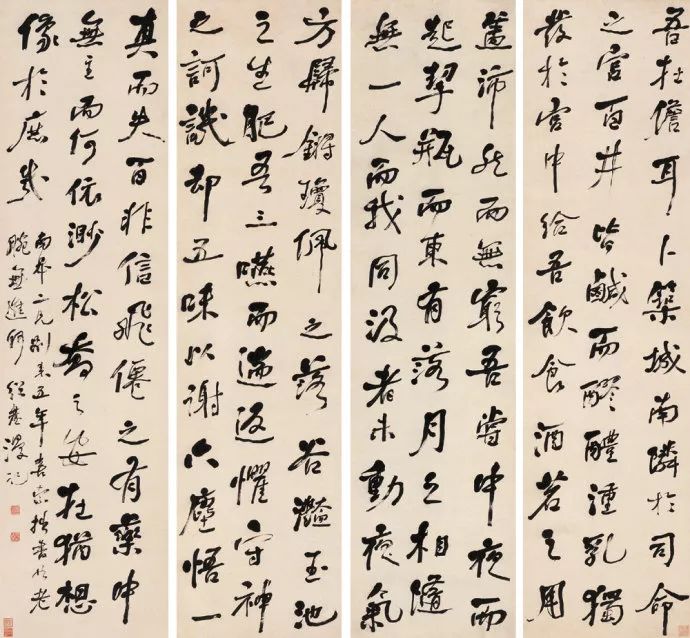 吾在儋耳卜築城南隣於司命
之宮百井皆鹹而醪醴湩乳獨
發於宮中給吾飲食酒茗之用
蓋沛然而無窮吾嘗中夜而
起挈瓶而東有落月之相隨
無一人而我同汲者未動夜氣
方歸鏘瓊佩之落谷灩玉池
之生肥吾三嚥而遄返懼守神
之訶譏却五味以謝六塵悟一
真而失百非信飛僊之有藥中
無主而何依渺松喬之安在猶想
像於庶幾
南屏二兄別來五年喜索拙書
腕無進